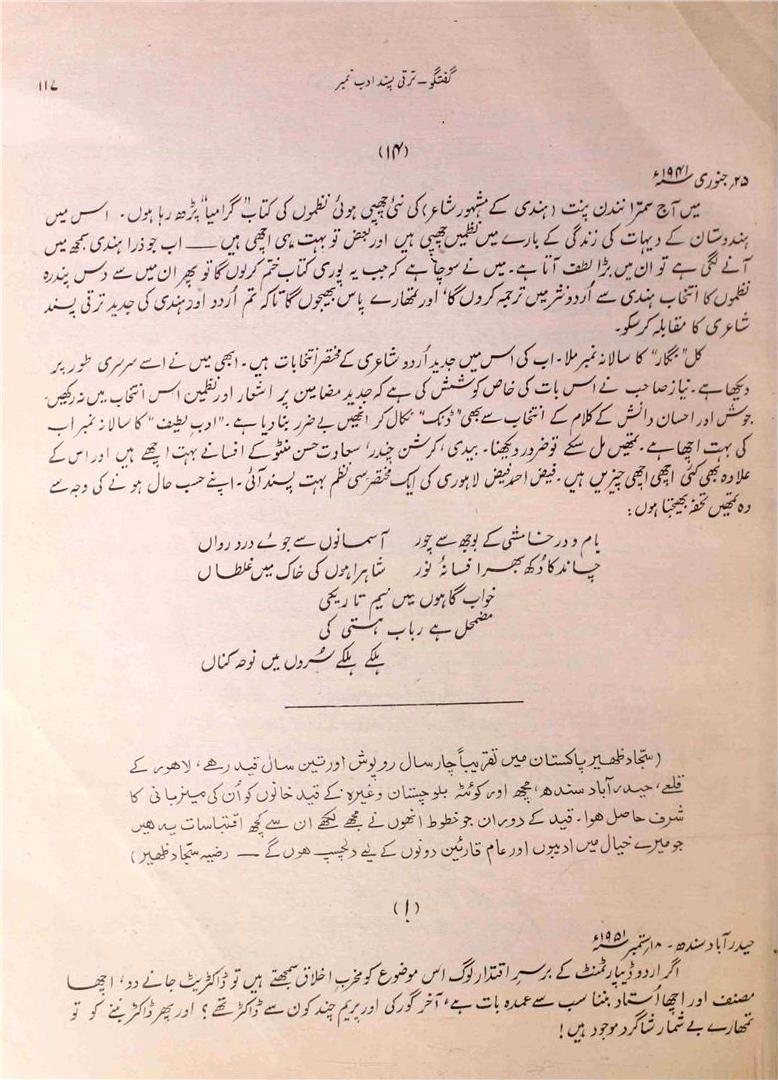 گفتگو ۔ ترقی پسند ادب نمبر
۱۱۷
(۱۴)
۲۵؍ جنوری ۱۹۴۱ء
میں آج سمترا نندن پنت (ہندی کے مشہور شاعر) کی نئی چھپی ہوئی نظموں کی کتاب "گرامیا" پڑھ رہا ہوں۔ اس میں
ہندوستان کے دیہات کی زندگی کے بارے میں نظمیں چھپی ہیں اور بعض تو بہت ہی اچھی ہیں ـــــ اب جو ذرا ہندی سمجھ میں
آنے لگی ہے تو ان میں بڑا لطف آتا ہے۔ میں نے سوچا ہے کہ جب یہ پوری کتاب ختم کر لوں گا تو پھر ان میں سے دس پندرہ
نظموں کا انتخاب ہندی سے اُردو نثر میں ترجمہ کردوں گا، اور تمھارے پاس بھیجوں گا تاکہ تم اُردو اور ہندی کی جدید ترقی پسند
شاعری کا مقابلہ کرسکو۔
کل "نگار" کا سالانہ نمبر ملا۔ اب کی اس میں جدید اُردو شاعری کے مختصر انتخابات ہیں۔ ابھی میں نے اسے سرسری طور پر
دیکھا ہے۔ نیاز صاحب نے اس بات کی خاص کوشش کی ہے کہ جدید مضامین پر اشعار اور نظمیں اس انتخاب میں نہ رکھیں۔
جوش اور احسان دانش کے کلام کے انتخاب سے بھی "ڈنک" نکال کر انھیں بے ضرر بنا دیا ہے۔ "ادب لطیف" کا سالانہ نمبر اب
کی بہت اچھا ہے۔ تمھیں مل سکے تو ضرور دیکھنا۔ بیدی، کرشن چندر، سعادت حسن منٹو کے افسانے بہت اچھے ہیں اور اس کے
علاوہ بھی کئی اچھی اچھی چیزیں ہیں۔ فیض احمد فیض لاہوری کی ایک مختصر سی نظم بہت پسند آئی۔ اپنے حسب حال ہونے کی وجہ سے
وہ تمھیں تحفہ بھیجتا ہوں:
بام و در خامشی کے بوجھ سے چور آسمانوں سے جوئے درد رواں
چاند کا دُکھ بھرا افسانۂ نور شاہراہوں کی خاک میں غلطاں
خواب گاہوں میں نیم تاریکی
مضمحل ہے رباب ہستی کی
ہلکے ہلکے سُروں میں نوحہ کناں
(سجاد ظہیر پاکستان میں تقریباً چار سال روپوش اور تین سال قید رھے، لاھور کے
قلعے، حیدرآباد سندھ، مچھ اور کوئٹہ بلوچستان وغیرہ کے قید خانوں کو اُن کی میزبانی کا
شرف حاصل ھوا۔ قید کے دوران جو خطوط انھوں نے مجھے لکھے ان سے کچھ اقتباسات یہ ھیں
جو میرے خیال میں ادیبوں اور عام قارئین دونوں کے لیے دلچسپ ھوں گے ـــ رضیہ سجاد ظہیر)
(۱)
حیدرآباد سندھ۔ ۱۸؍ ستمبر ۱۹۵۱ء
اگر اردو ڈیپارٹمنٹ کے برسرِ اقتدار لوگ اس موضوع کو مخربِ اخلاق سمجھتے ہیں تو ڈاکٹریٹ جانے دو، اچھا
مصنف اور اچھا اُستاد بننا سب سے عمدہ بات ہے، آخر گورکی اور پریم چند کون سے ڈاکٹر تھے؟ اور پھر ڈاکٹر بننے کو تو
تمھارے بے شمار شاگرد موجود ہیں!